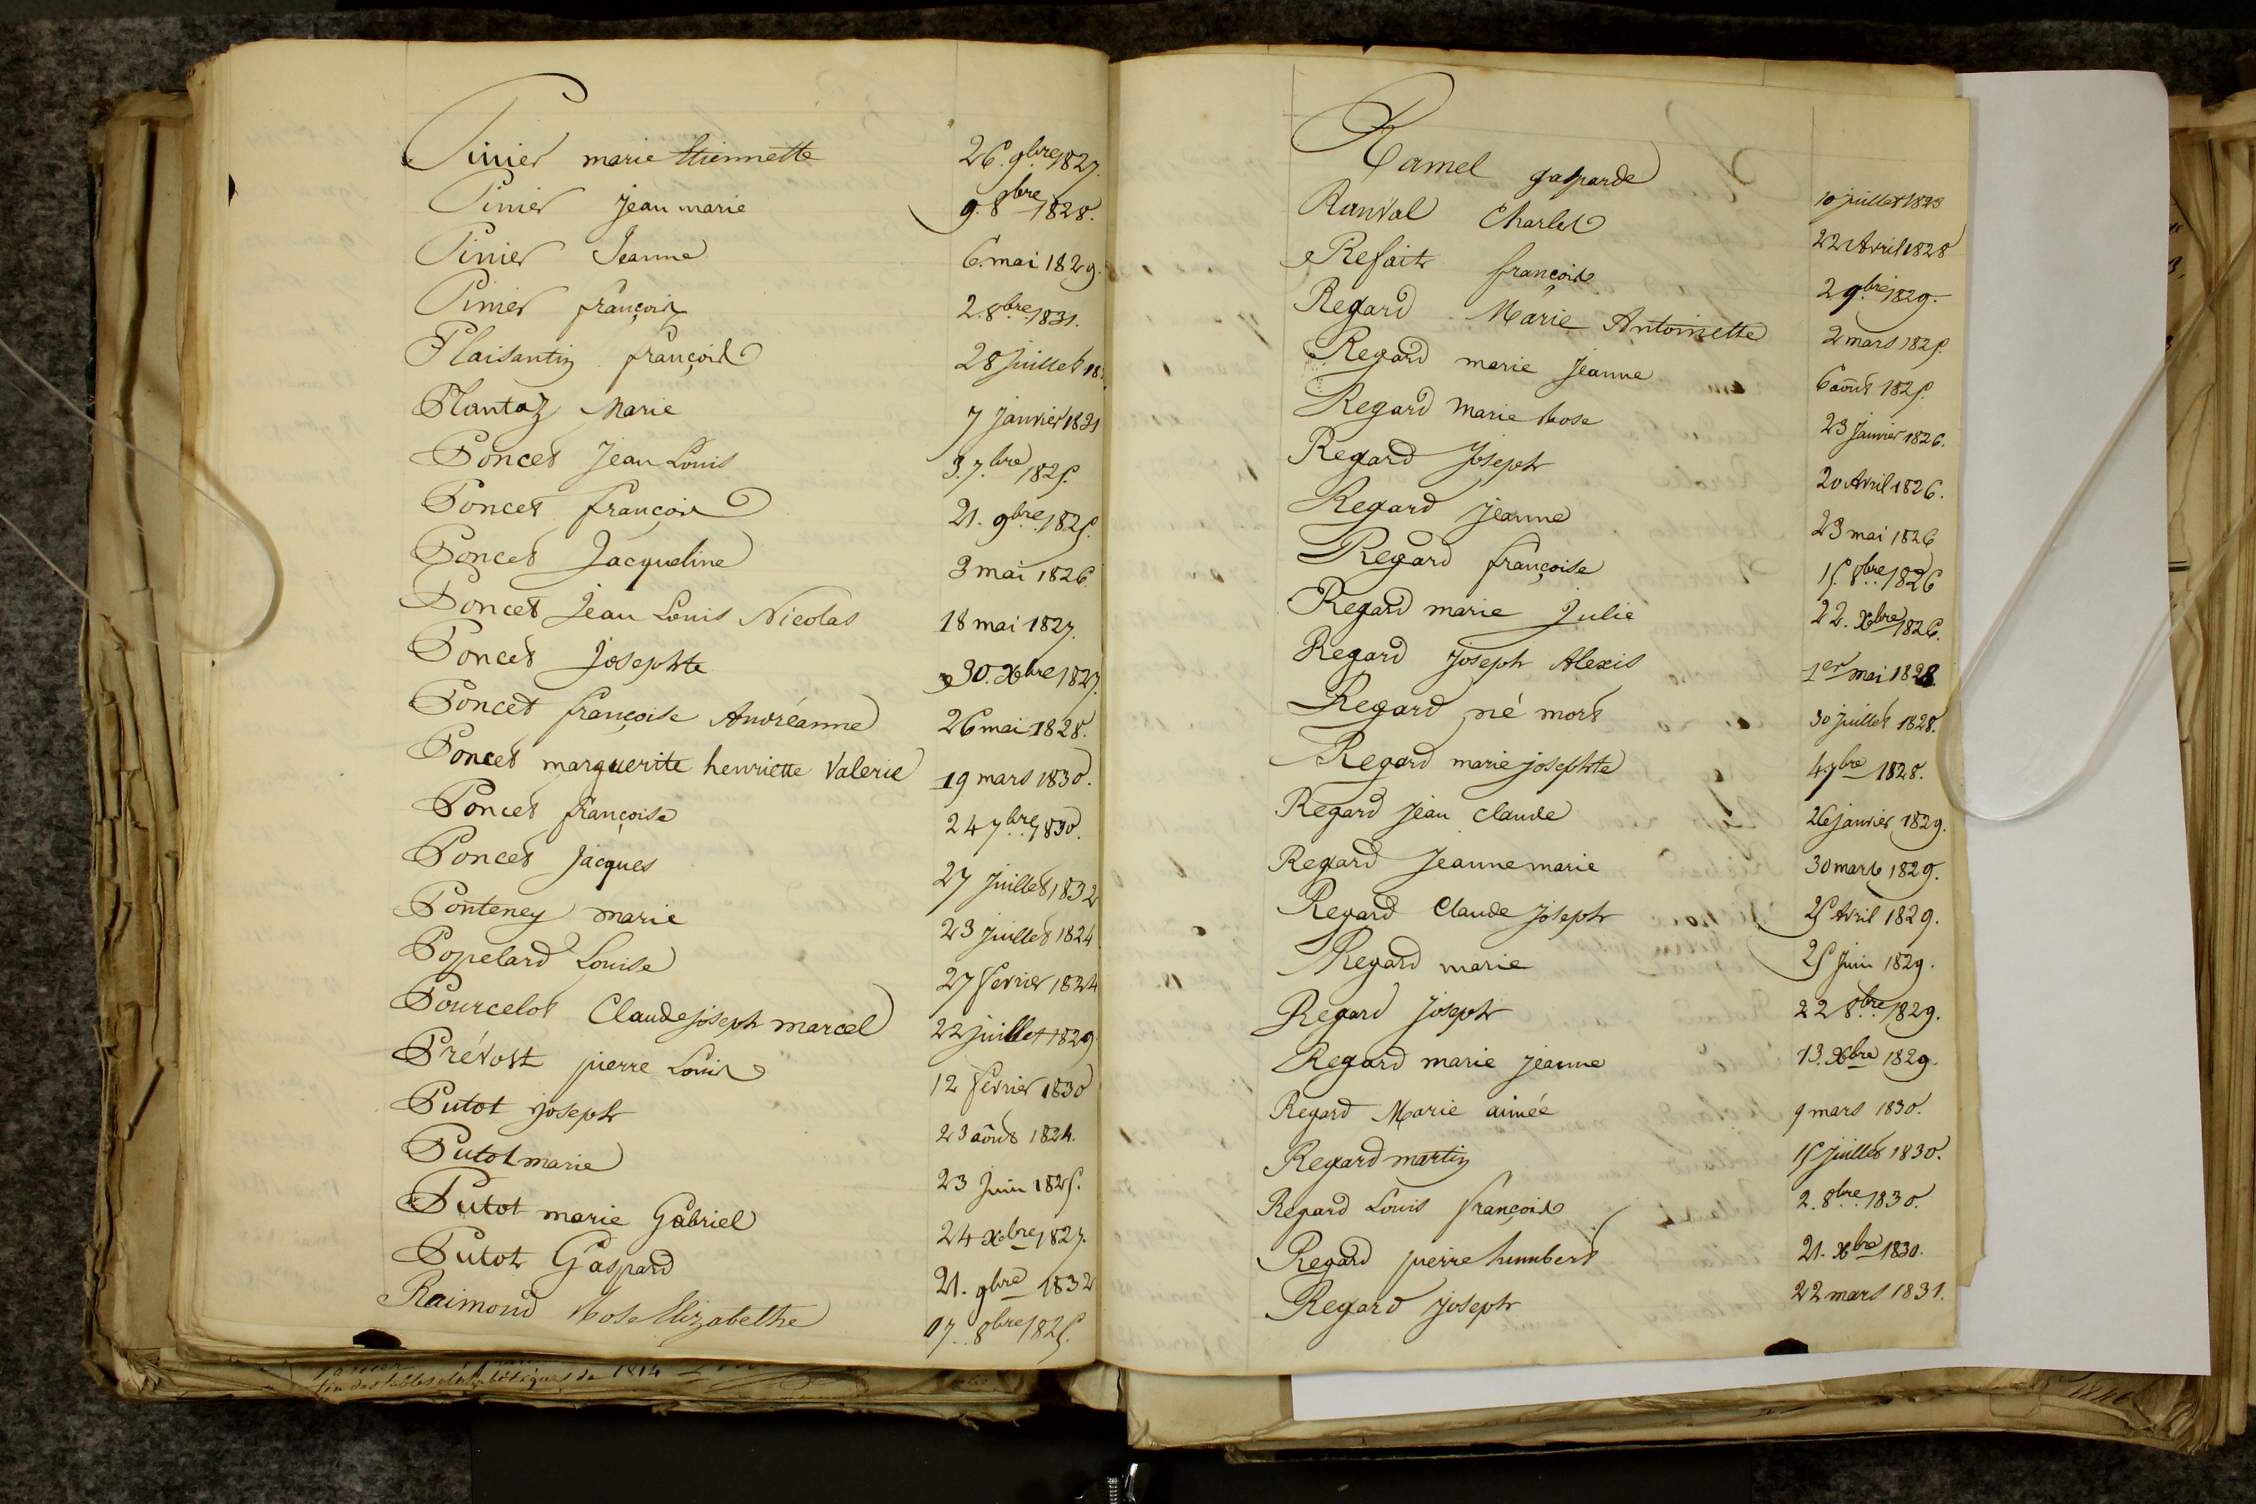 Pinier marie Etiennette 26. 9bre 1827.
Pinier jean marie 9. 8bre 1828.
Pinier Jeanne 6. mai 1829.
Pinier françois 2. 8bre 1831.
Plaisantin françois 28 juillet 18
Plantaz Marie 7 janvier 1831
Poncet Jean Louis 3. 7.bre 1825.
Poncet françois 21. 9bre 1825.
Poncet Jacqueline 3 mai 1826
Poncet Jean Louis Nicolas 18 mai 1827.
Poncet Josephte 30. Xbre 1827.
Poncet françoise Andréanne 26 mai 1828.
Poncet marguerite henriette Valerie 19 mars 1830.
Poncet françoise 24 7bre 1830.
Poncet Jacques 27 juillet 1832
Ponteney marie 23 juillet 1824
Popelard Louise 27 fevrier 1824
Pourcelot Claude joseph marcel 22 juillet 1829
Prévost pierre Louis 12 fevrier 1830
Putot joseph 23 aôut 1824.
Putot marie 23 juin 1825.
Putot marie Gabriel 24 Xbre 1827.
Putot Gaspard 21. 9bre 1832
Raimond Rose Elizabethe 17. 8bre 1825.
fin des tables alphabétiques de 1814
Ramel gasparde 10 juillet 1823
Ranval Charles 22 Avril 1828
Refait françois 2 9bre 1829.
Regard Marie Antoinette 2 mars 1825.
Regard marie jeanne 6 aôut 1825.
Regard marie Rose 23 Janvier 1826.
Regard Joseph 20 Avril 1826.
Regard jeanne 23 mai 1826
Regard françoise 15. 8bre 1826
Regard marie Julie 22. Xbre 1826.
Regard joseph Alexis 1er mai 1828.
Regard né mort 30 juillet 1828.
Regard marie josephte 4 7bre 1828.
Regard jean claude 26 janvier 1829.
Regard Jeanne marie 30 mars 1829.
Regard Claude joseph 25 Avril 1829.
Regard marie 25 Juin 1829.
Regard joseph 22 8bre 1829.
Regard marie jeanne 13. Xbre 1829.
Regard Marie aimée 9 mars 1830.
Regard martin 15 juillet 1830.
Regard Louis françois 2. 8bre 1830.
Regard pierre humbert 21. Xbre 1830.
Regard joseph 22 mars 1831.